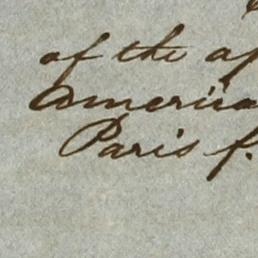 of the ap
America
Paris f.